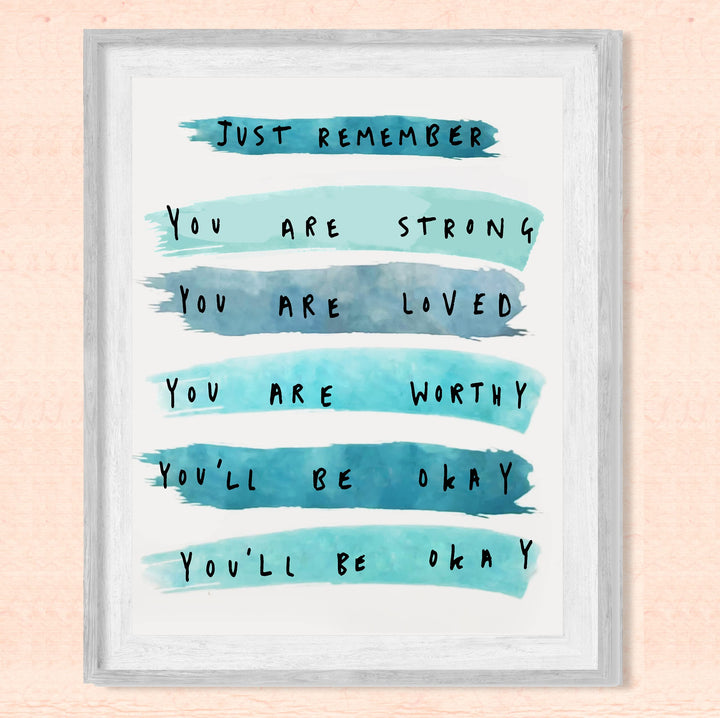 JUST REMEMBER
YOU ARE STRONG
YOU ARE LOVED
YOU ARE WORTHY
YOU'LL BE OKAY
YOU'LL BE OKAY